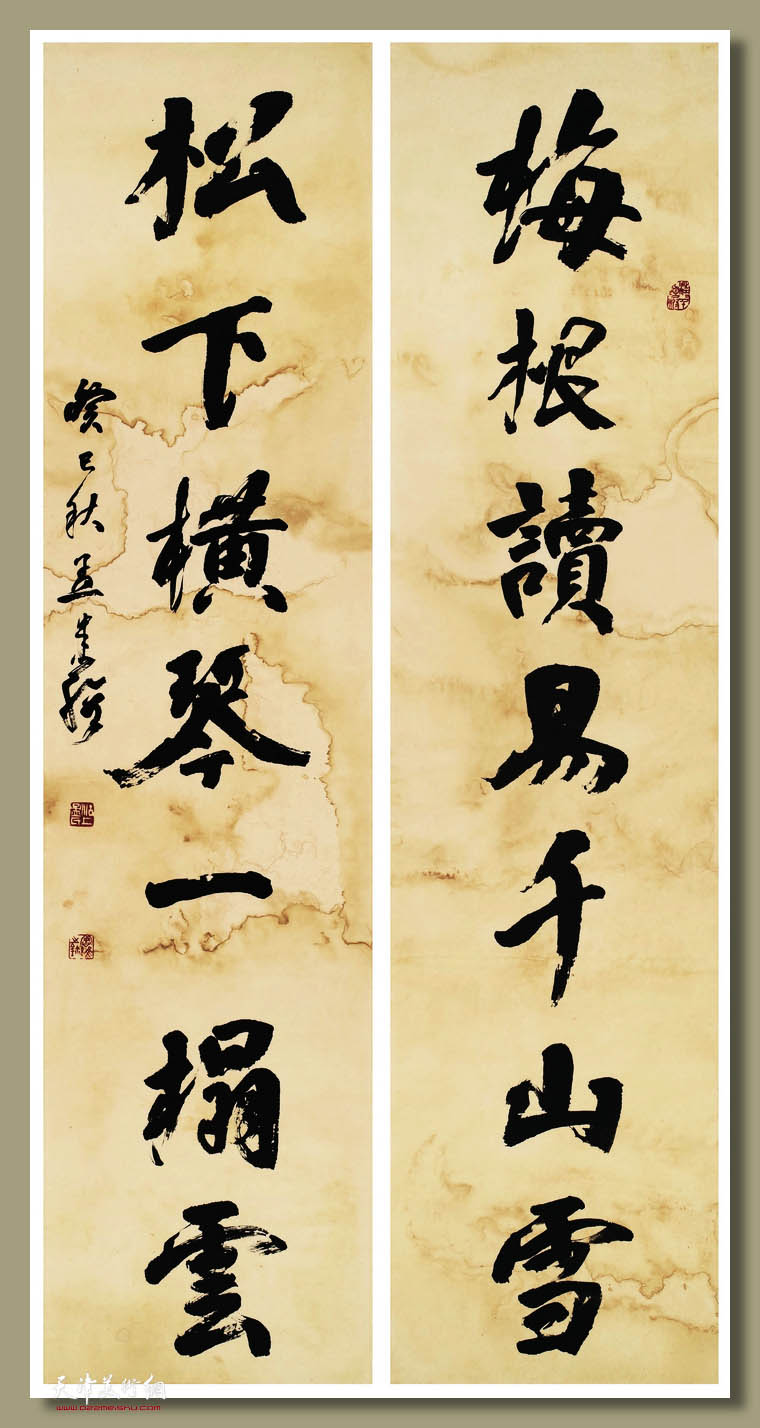 梅根讀易千山雪
松下横琴一榻雲
癸巳秋孟
天津美術網
www.022meishu.com